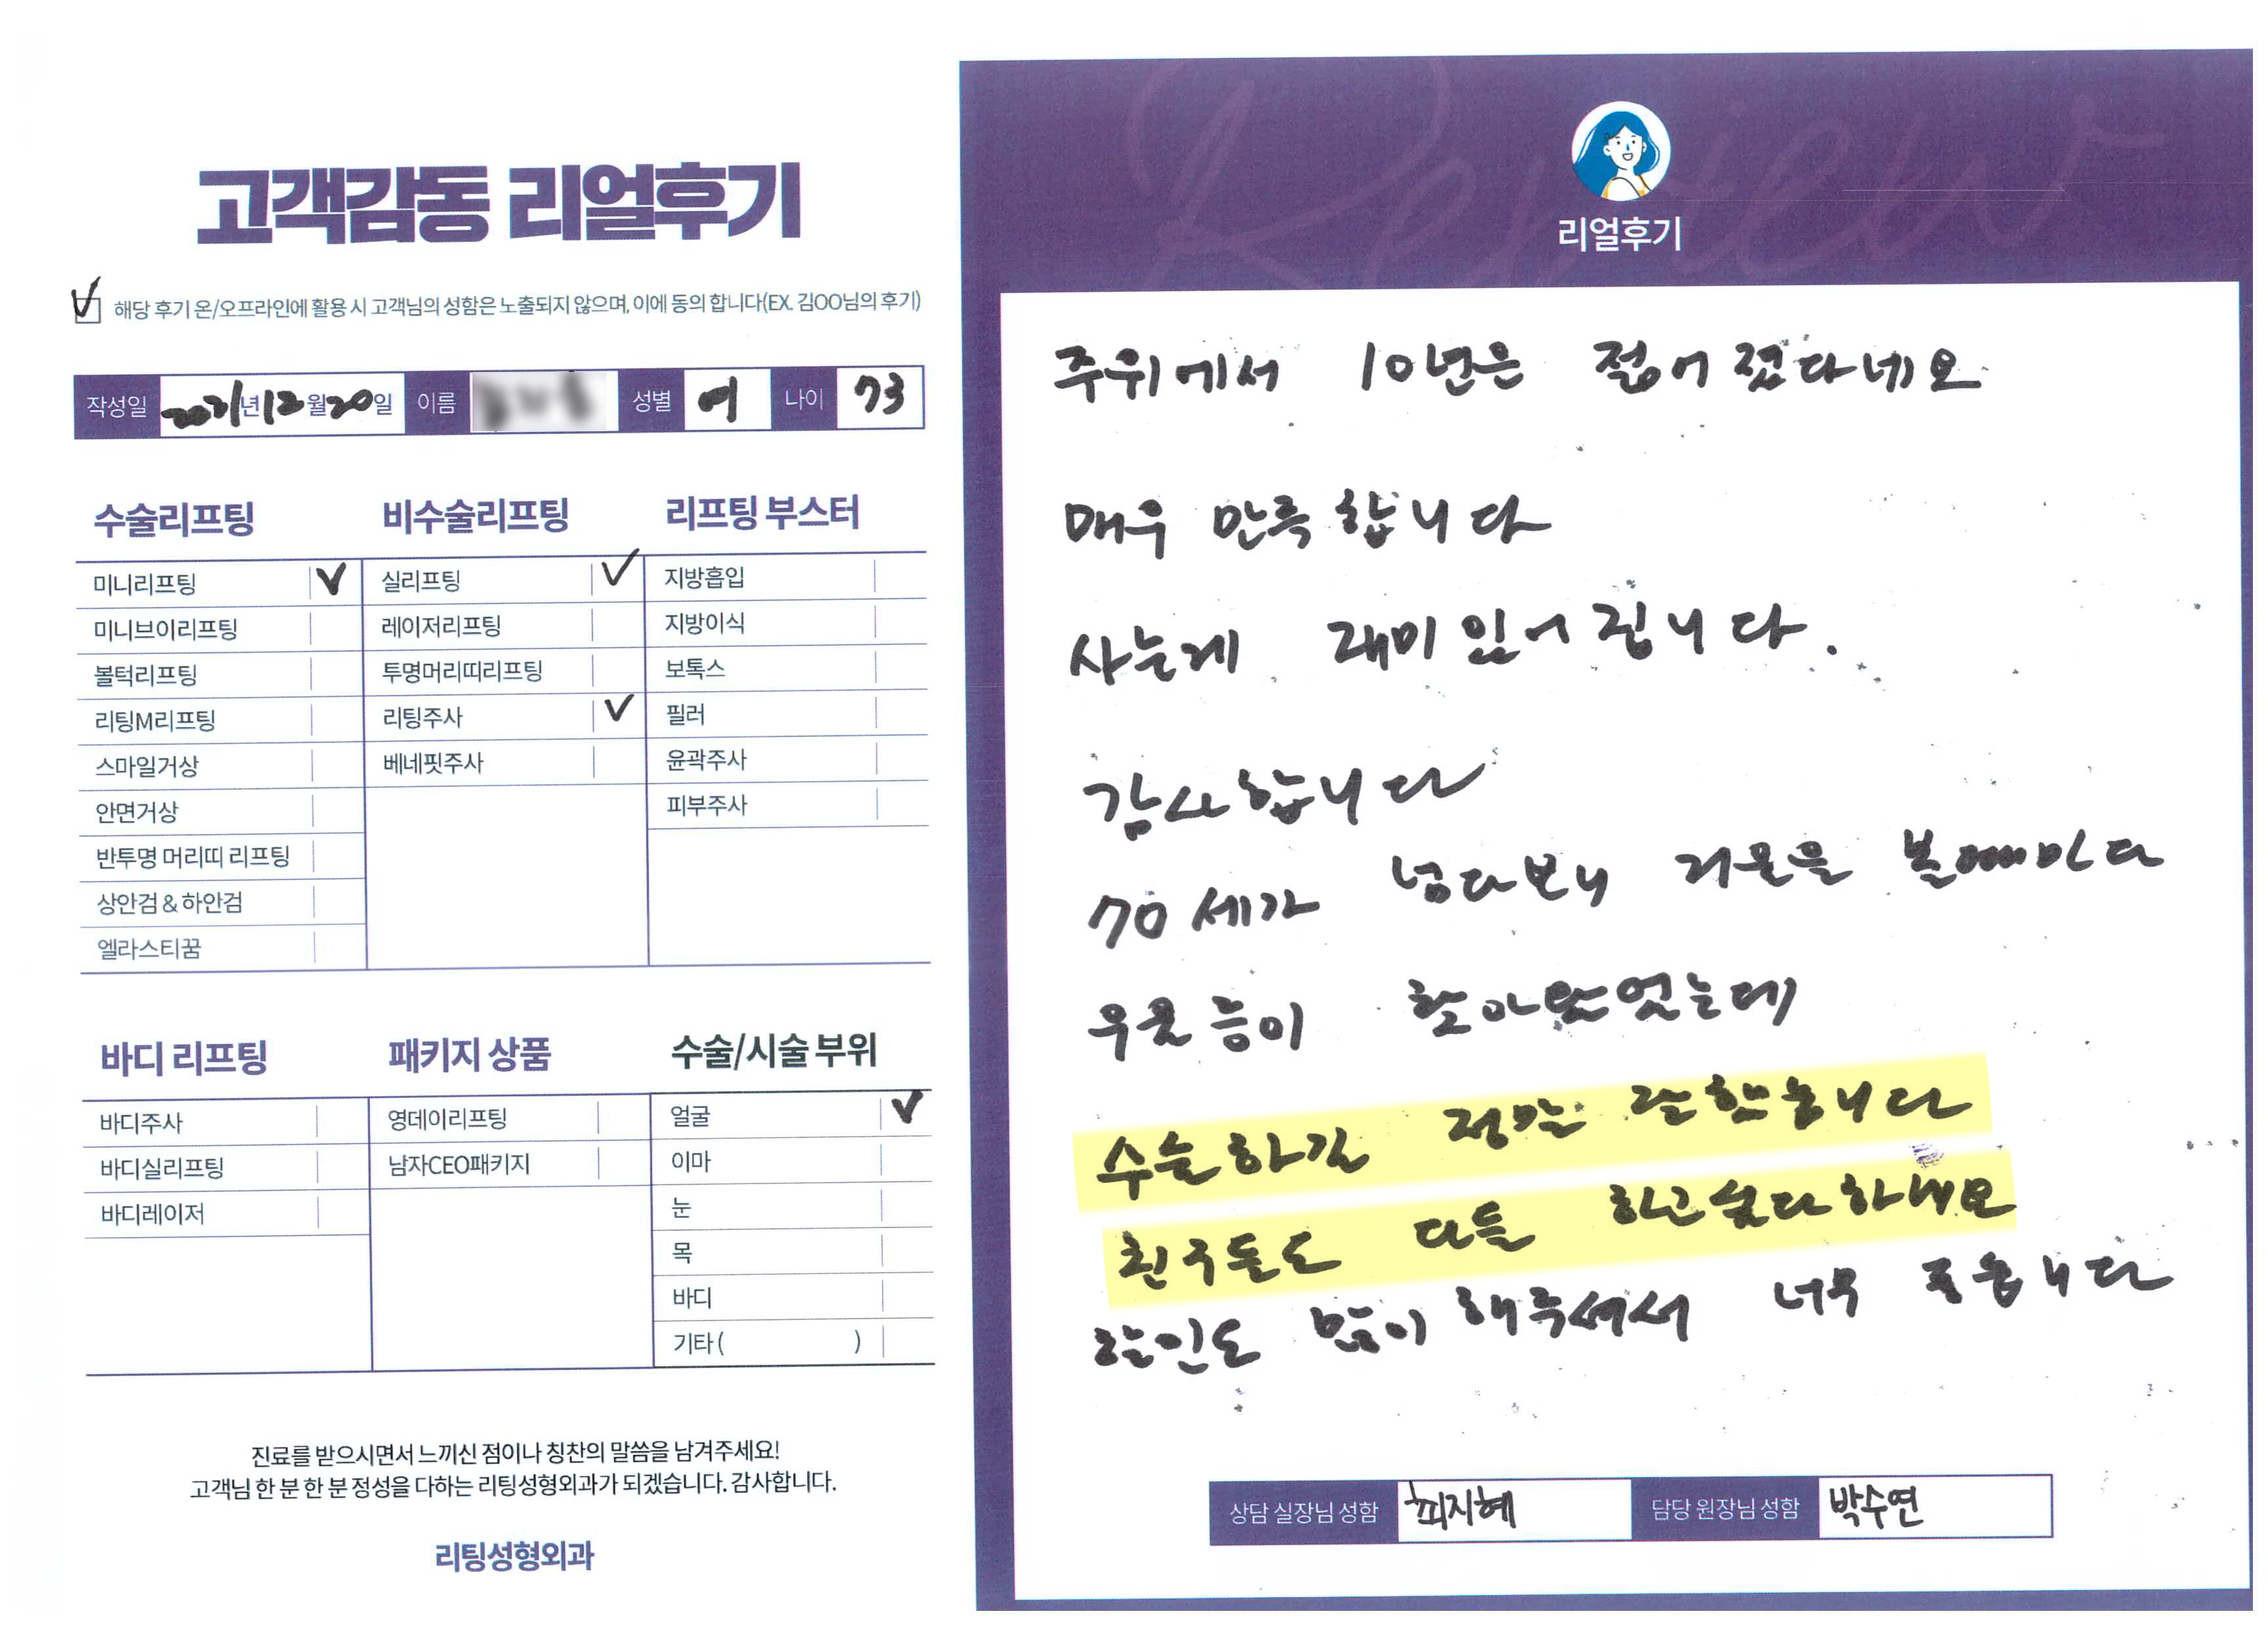 고객감동 리얼후기
해당 후기 온/오프라인에 활용 시 고객님의 성함은 노출되지 않으며, 이에 동의 합니다(EX. 김OO님의 후기)
작성일 2021년 12월 20일 이름 성별 여 나이 73
수술리프팅
미니리프팅
미니브이리프팅
볼턱리프팅
리팅M리프팅
스마일거상
안면거상
반투명 머리띠 리프팅
상안검 & 하안검
엘라스티꿈
비수술리프팅
실리프팅
레이저리프팅
투명머리띠리프팅
리팅주사
베네핏주사
리프팅 부스터
지방흡입
지방이식
보톡스
필러
윤곽주사
피부주사
바디 리프팅
바디주사
바디실리프팅
바디레이저
패키지 상품
영데이리프팅
남자CEO패키지
수술/시술 부위
얼굴
이마
눈
목
바디
기타 ( )
진료를 받으시면서 느끼신 점이나 칭찬의 말씀을 남겨주세요!
고객님 한 분 한 분 정성을 다하는 리팅성형외과가 되겠습니다. 감사합니다.
리팅성형외과
Review
리얼후기
주위에서 10년은 젊어 졌다네요
매우 만족합니다
사는게 재미있어집니다.
감사합니다
70세가 넘다보니 거울을 볼때마다
우울증이 찾아왔었는데
수술하길 정말 잘했습니다
친구들도 다들 하고싶다하네요
할인도 많이 해주셔서 너무 좋습니다
상담 실장님 성함 피지혜 담당 원장님 성함 박수연